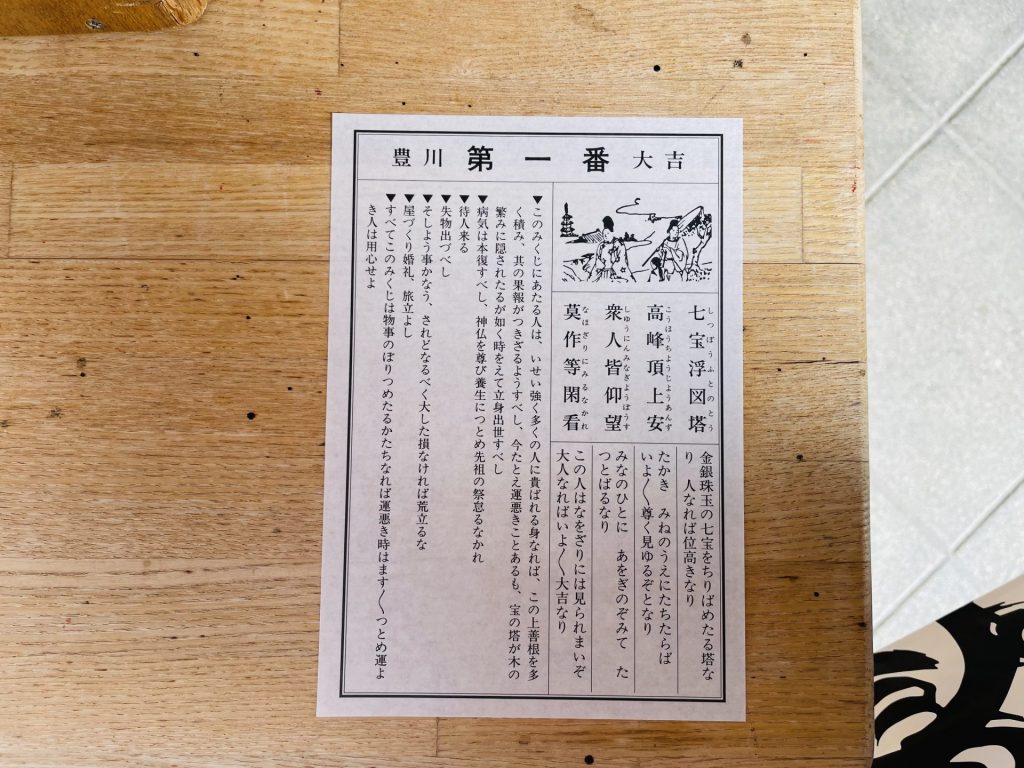 豊川 第一番 大吉
七宝浮図塔
しつぽうふとのとう
高峰頂上安
こうほうちようじようあんず
衆人皆仰望
しゆうにんみなぎようぼうす
莫作等閑看
なほざりにみるなかれ
金銀珠玉の七宝をちりばめたる塔な
り 人なれば位高きなり
たかき みねのうえにたちたらば
いよ〳〵尊く見ゆるぞとなり
みなのひとに あをぎのぞみて た
つとばるなり
この人はなをざりには見られまいぞ
大人なればいよ〳〵大吉なり
▼このみくじにあたる人は、いせい強く多くの人に貴ばれる身なれば、この上善根を多
く積み、其の果報がつきざるようすべし、今たとえ運悪きことあるも、宝の塔が木の
繁みに隠されたるが如く時をえて立身出世すべし
▼病気は本復すべし、神仏を尊び養生につとめ先祖の祭怠るなかれ
▼待人来る
▼失物出づべし
▼そしよう事かなう、されどなるべく大した損なければ荒立るな
▼屋づくり婚礼、旅立よし
▼すべてこのみくじは物事のぼりつめたるかたちなれば運悪き時はます〳〵つとめ運よ
き人は用心せよ